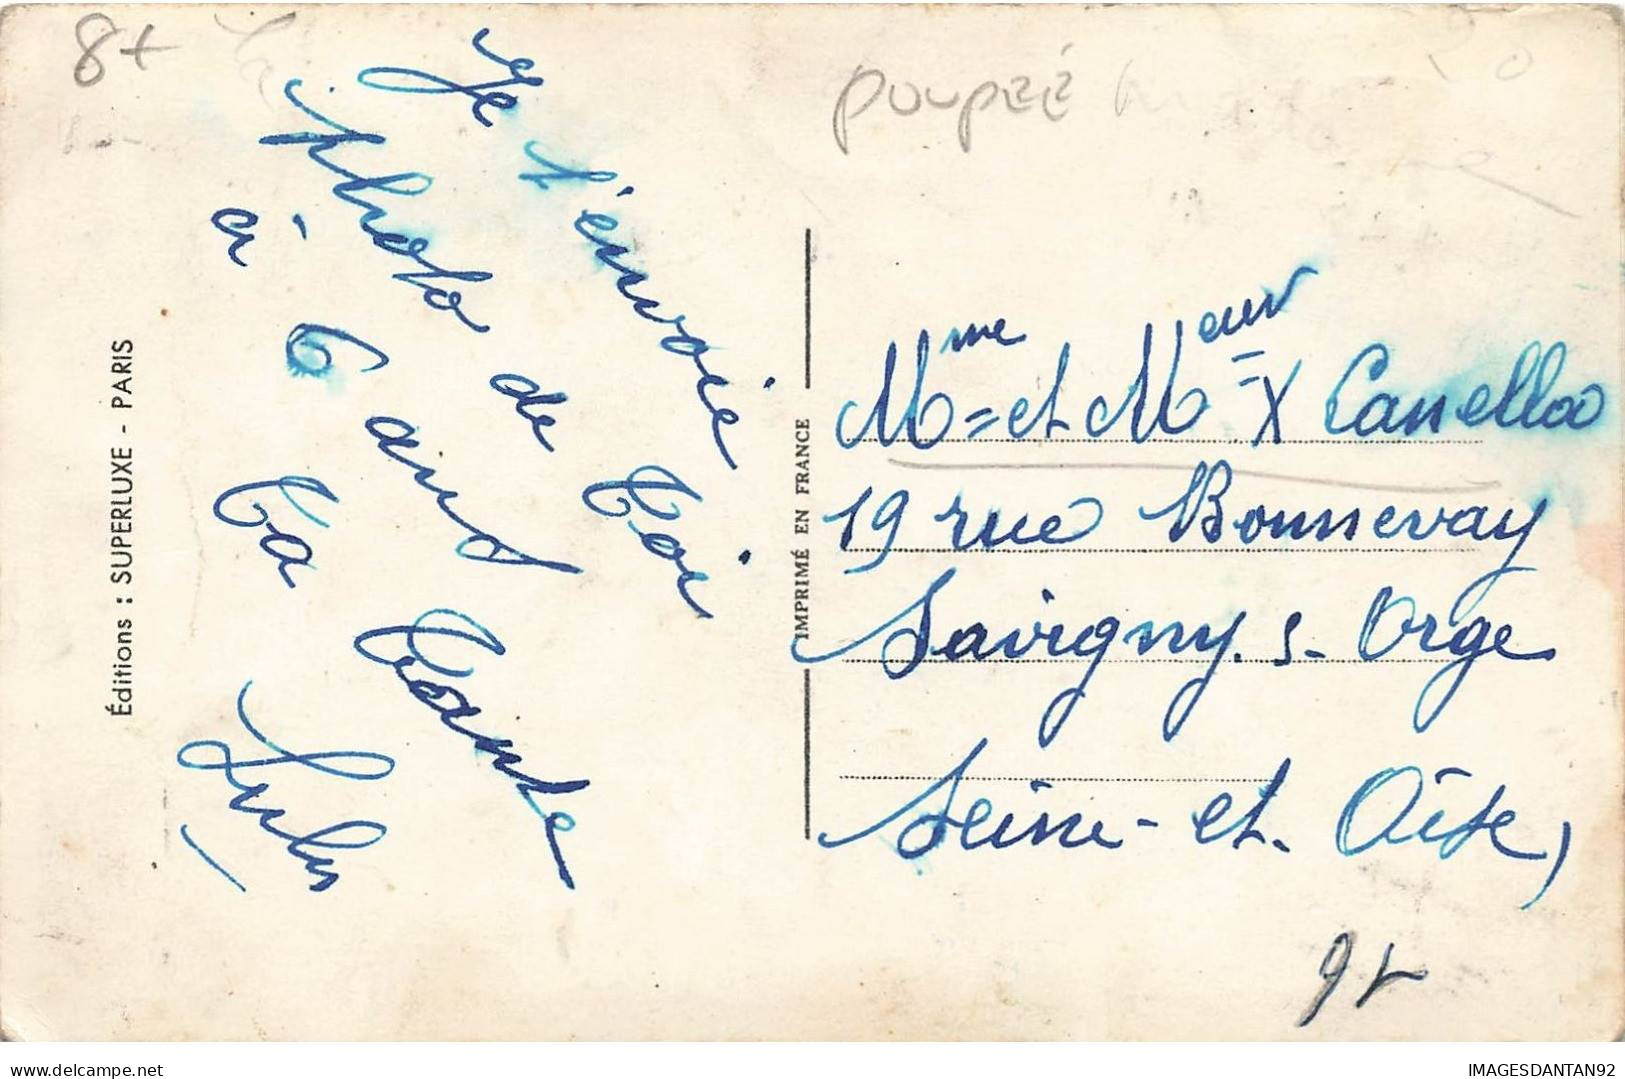 8+
poupéé
Je t'envoie
photo de toi
à 6 ans
Ta Tante
Lulu
Éditions : SUPERLUXE - PARIS
IMPRIMÉ EN FRANCE
Mme et Meur X Canella
19 rue Bonnevay
Savigny. s- Orge
Seine-et-Oise)
delcampe.net
IMAGESDANTAN92